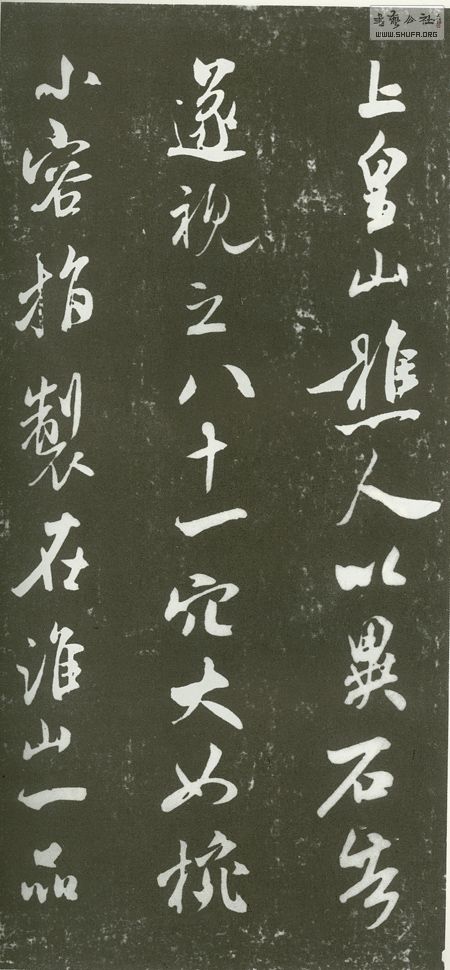 上皇山樵人以異石告
遂視之八十一穴大如椀
小容指製在淮山一品
書藝公社
WWW.SHUFA.ORG